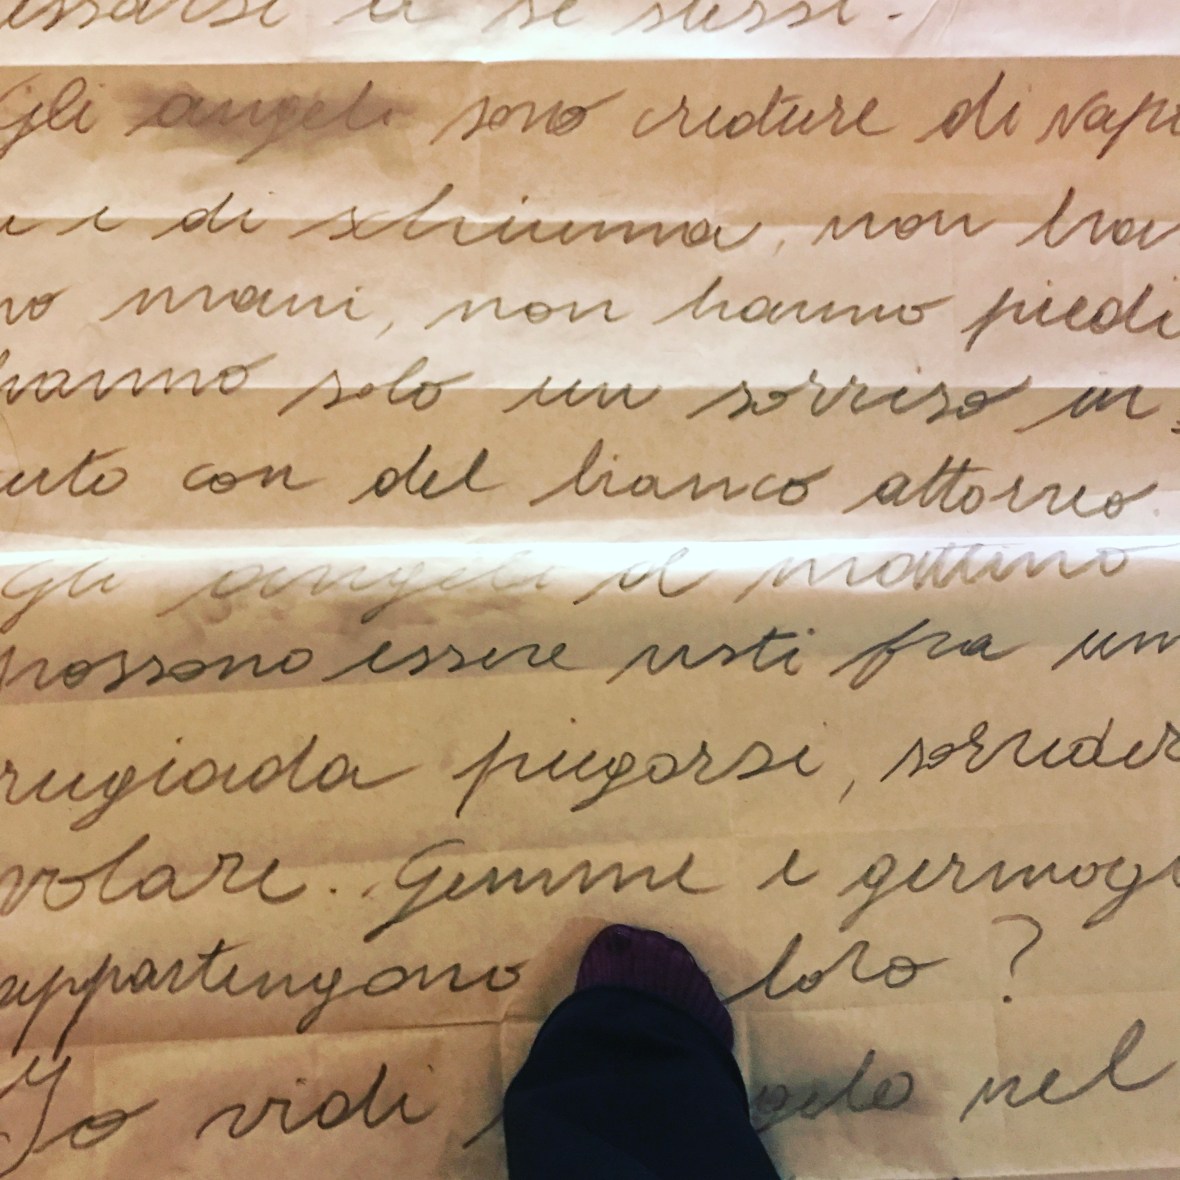 essarsi a se stessi.
Gli angeli sono creature di vap
e di schiuma, non han
no mani, non hanno piedi
hanno solo un sorriso in
uto con del bianco attorno.
Gli angeli il mattino
possono essere visti fra un
rugiada piegarsi, sorrider
volare. Gemme e germogl
appartengono loro?
Io vidi gelo nel